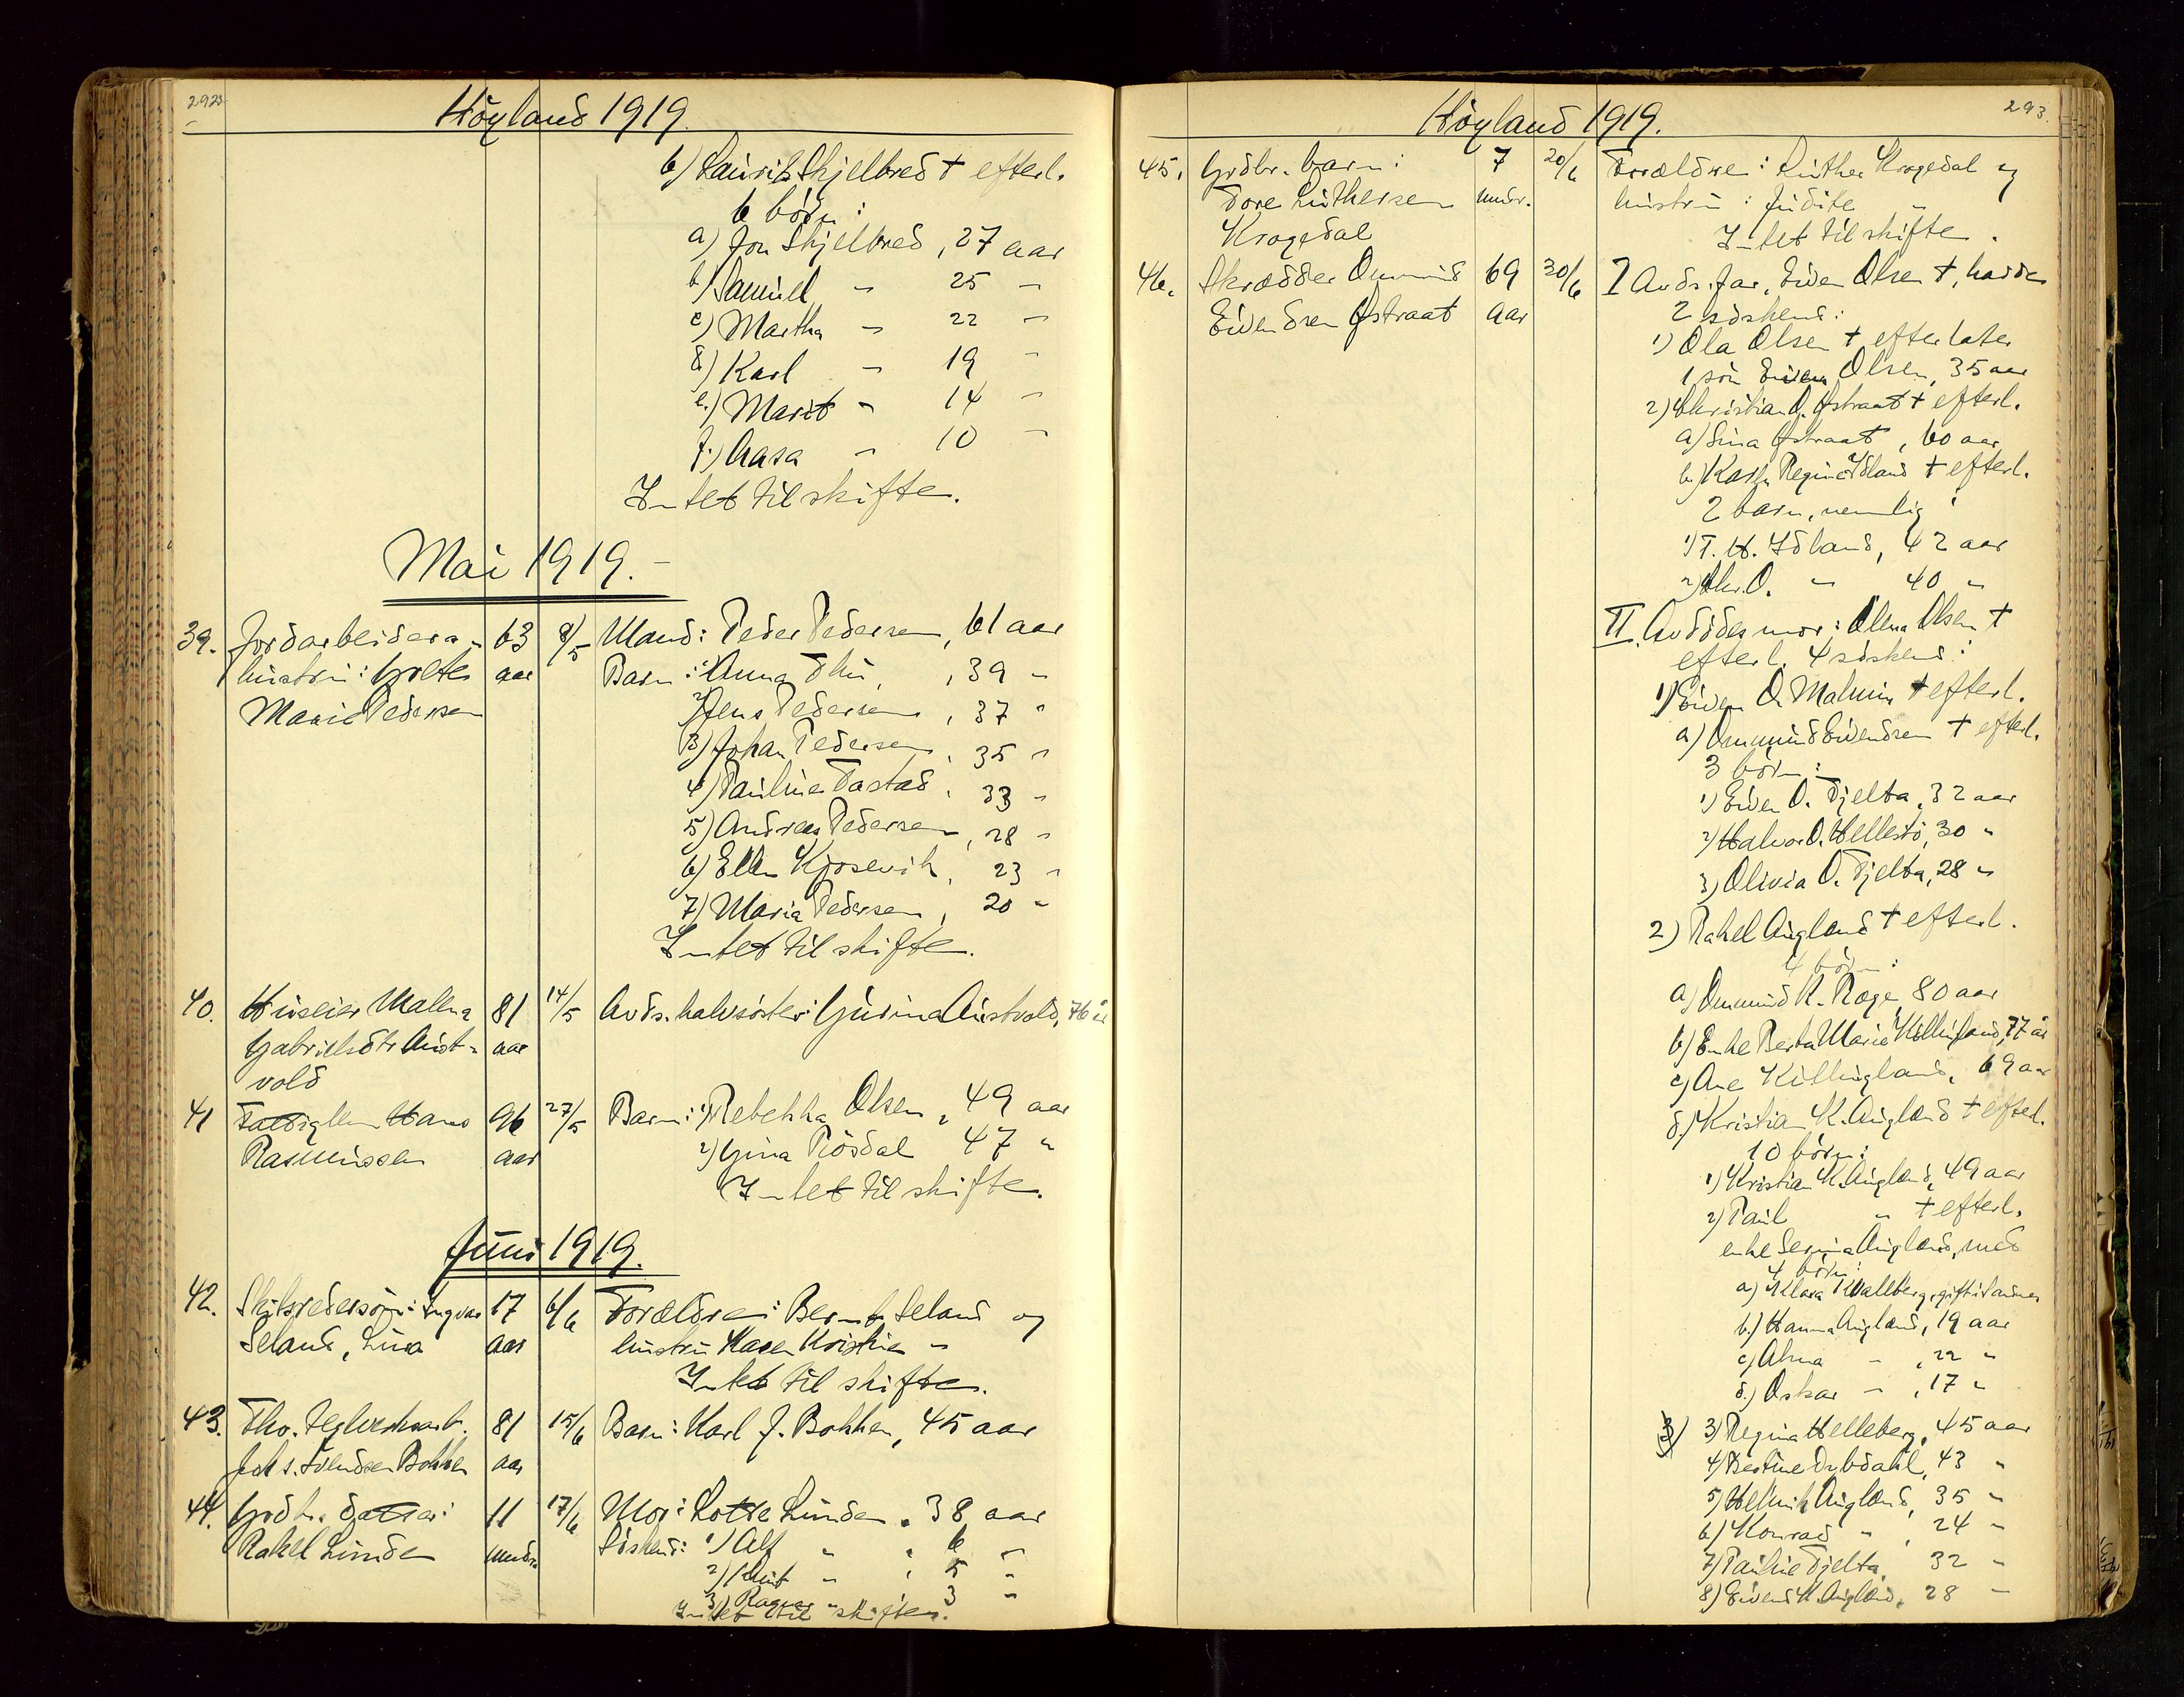 292
Höyland 1919.
6) Laurits Skjelbred † efterl.
6 börn:
a) Jon Skjelbred, 27 aar
b) Samuel " 25 "
c) Martha " 22 "
d) Karl " 19 "
e.) Marit " 14 "
f.) Aasa " 10 "
Intet til skifte.
Mai 1919.-
39. Jordarbeiders- 63 9/5 Mand: Peder Pedersen, 61 aar
hustru: Golter aar Barn: 1) Anna Thu, 39 "
Marie Pedersen 2) Jens Pedersen, 37 "
3) Johan Pedersen, 35 "
4) Pauline Tastad, 33 "
5) Andreas Pedersen, 28 "
6) Ellen Kjosevik, 23 "
7) Maria Pedersen, 20 "
Intet til skifte.
40. Huseier Mallena 81 14/5 Avds. halvsöster: Gurina Austvold, 76 år
Gabrielsdtr Aust- aar
vold
41 Fattiglem Hans 96 27/5 Barn: 1) Rebekka Olsen, 49 aar
Rasmussen aar 2) Gina Rösdal 47 "
Intet til skifte.
Juni 1919.
42. Skibsredersön: Ingvar 17 6/6 Forældre: Bernt Seland og
Seland, Lura aar hustru Karen Kristine "
Intet til skifte.
43. Fho. Teglverksarb. 81 15/6 Barn: Karl J. Bokken, 45 aar
Johs. Svendsen Bokken aar
44. Grdbr. datter: 11 17/6 Mor: Lotte Lunden, 38 aar
Rakel Lunden mndr. Söskend: 1) Alf " , 6 "
2) Knut " , 5 "
3) Ragnar " 3 "
Intet til skifte.
Höyland 1919.
293.
45. Grdbr. barn: 7 20/6 Forældre: Luther Krogedal og
Tore Luthersen mndr. hustru: Judite "
Krogedal Intet til skifte.
46. Skrædder Ommund 69 30/6 I Avds. far, Eiven Olsen †, hadde
Eivendsen Østraat aar 2 söskend:
1) Ola Olsen † efterlater
1 sön Eiven Olsen, 35 aar
2) Christian O. Østraat † efterl.
a) Sina Østraat, 60 aar
b) Karen Regine Idland † efterl.
2 barn, nemlig:
1) T. H. Idland, 42 aar
2) Chr. O. " 40 "
II. Avdödes mor: Olena Olsen †
efterl. 4 söskend:
1) Eiven O. Malmin † efterl.
a) Ommund Eivendsen † efterl.
3 börn:
1) Eiven O. Tjelta, 32 aar
2) Halvor O. Hellestö, 30 "
3) Olivia O. Tjelta, 28 "
2) Rakel Augland † efterl.
4 börn:
a) Ommund K. Roge, 80 aar
b) Enke Berta Marie Killingland, 77 år
c) Ane Killingland, 69 aar
d.) Kristian K. Augland † efterl.
10 börn:
1) Kristian K. Augland, 49 aar
2) Paul " † efterl.
enke Serina Augland, med
4 börn:
a) Klara Kvalleberg, gift
b.) Hanna Augland, 19 aar
c) Alma " , 22 "
d.) Oskar " , 17 "
3) Regina Helleberg, 45 aar
4) Bertine Dybdahl, 43 "
5) Helmik Augland, 35 "
6) Konrad " , 24 "
7) Pauline Tjelta, 32 "
8) Eivend K. Augland, 28 "